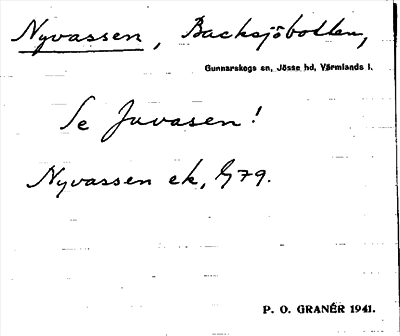 Nyvassen, Backsjöbotten,
Gunnarskogs sn, Jösse hd, Värmlands l.
Se Juvasen!
Nyvassen ek, G79.
P. O. GRANÉR 1941.